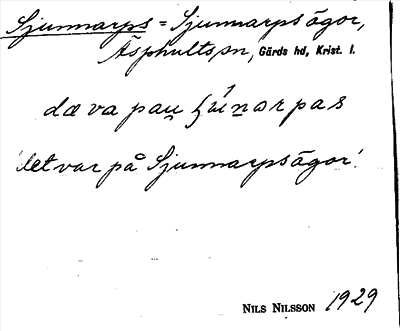 Sjunnarps = Sjunnarps ägor,
Äsphults sn, Gärds hd, Krist. l.
dæ va pau̱ ɧú̱narpas
'det var på Sjunnarps ägor'.
NILS NILSSON 1929